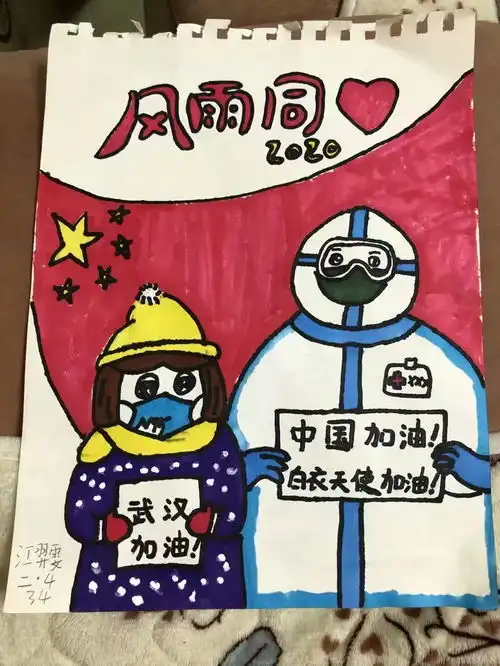 风雨同
2020
中国加油!
白衣天使加油!
武汉
加油!
二·4
34